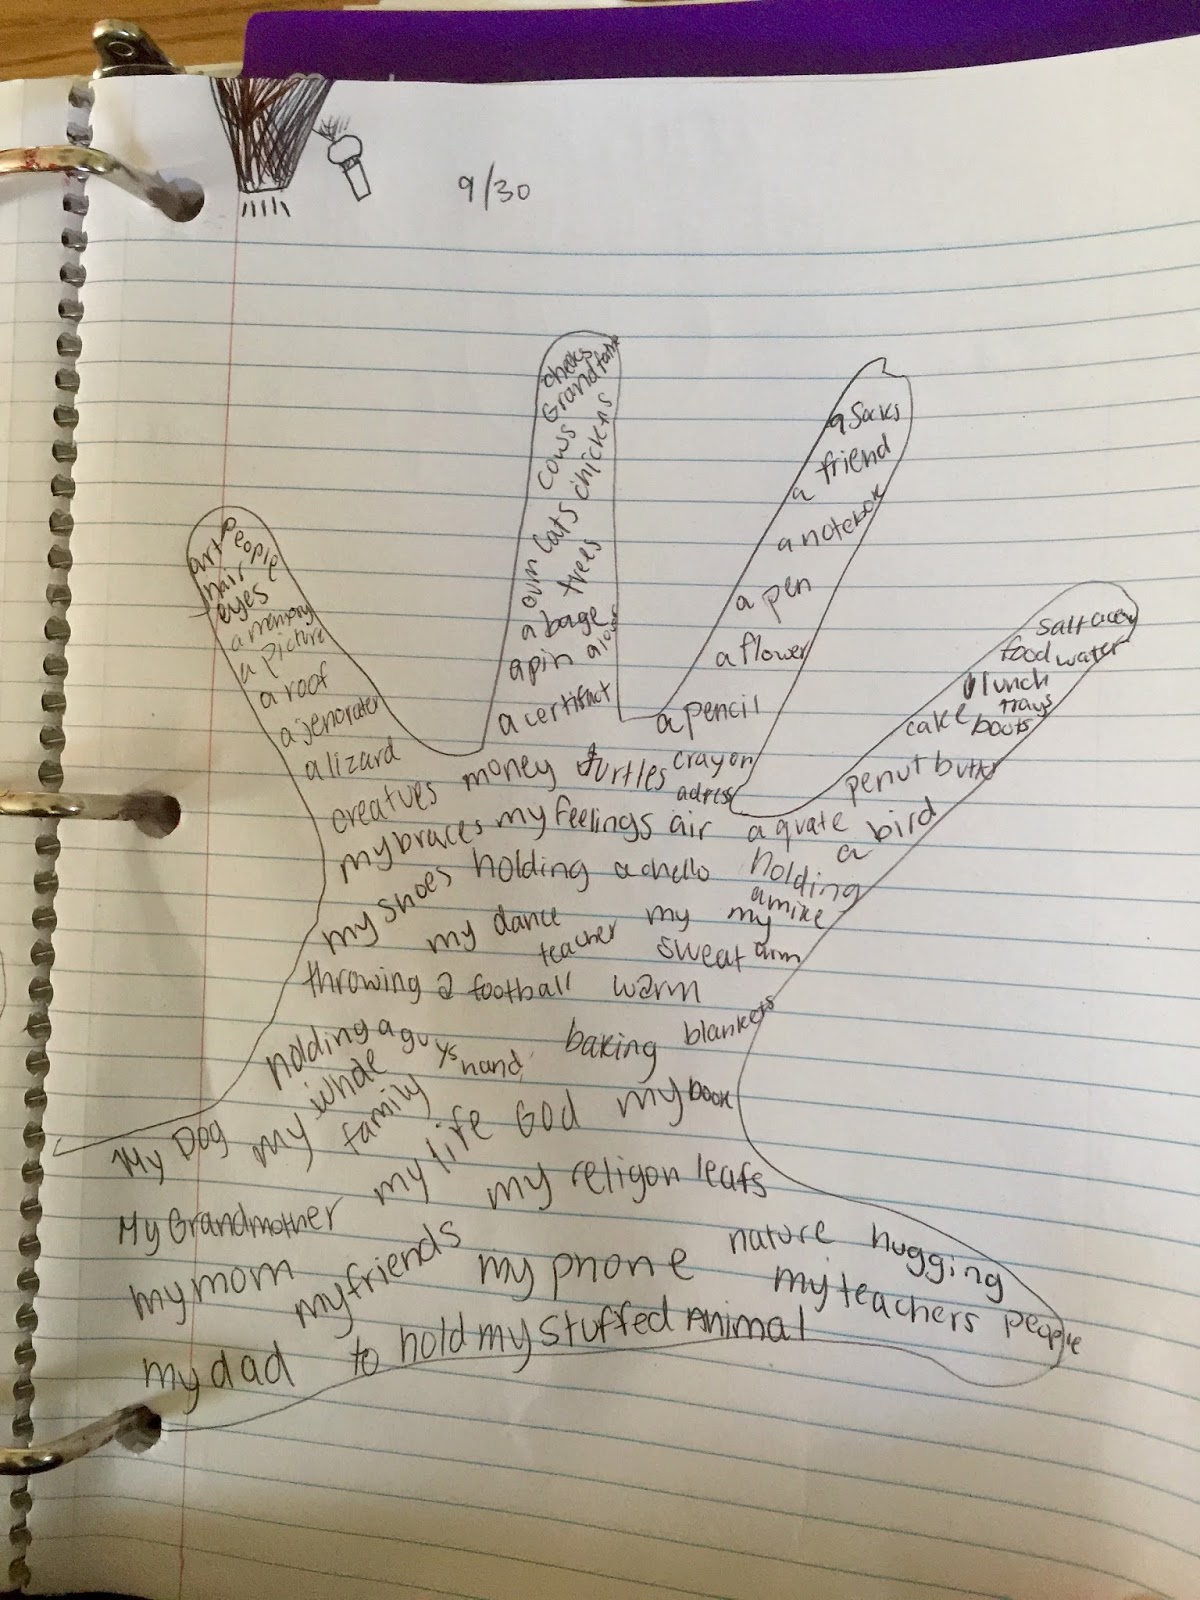 9/30
art People
hair
eyes
a memory
a picture
a roof
a jenorater
a lizard
cheeks
Grandfather
cows chickens
cats trees
a bage
a pin
a certifact
Socks
a friend
a notebok
a pen
a flower
a pencil
salt
food water
lunch
trays
cake boots
penut butter
creatues money turtles crayon
adress
my braces my feelings air a qrate a bird
my shoes holding a chello holding
a mike
my dance teacher my sweat my arm
throwing a football warm
holding a guys hand baking blankets
My Dog my whole family my life God my book
My Grandmother my religon leafs
my mom my friends my phone nature hugging
my dad to hold my stuffed Animal my teachers people